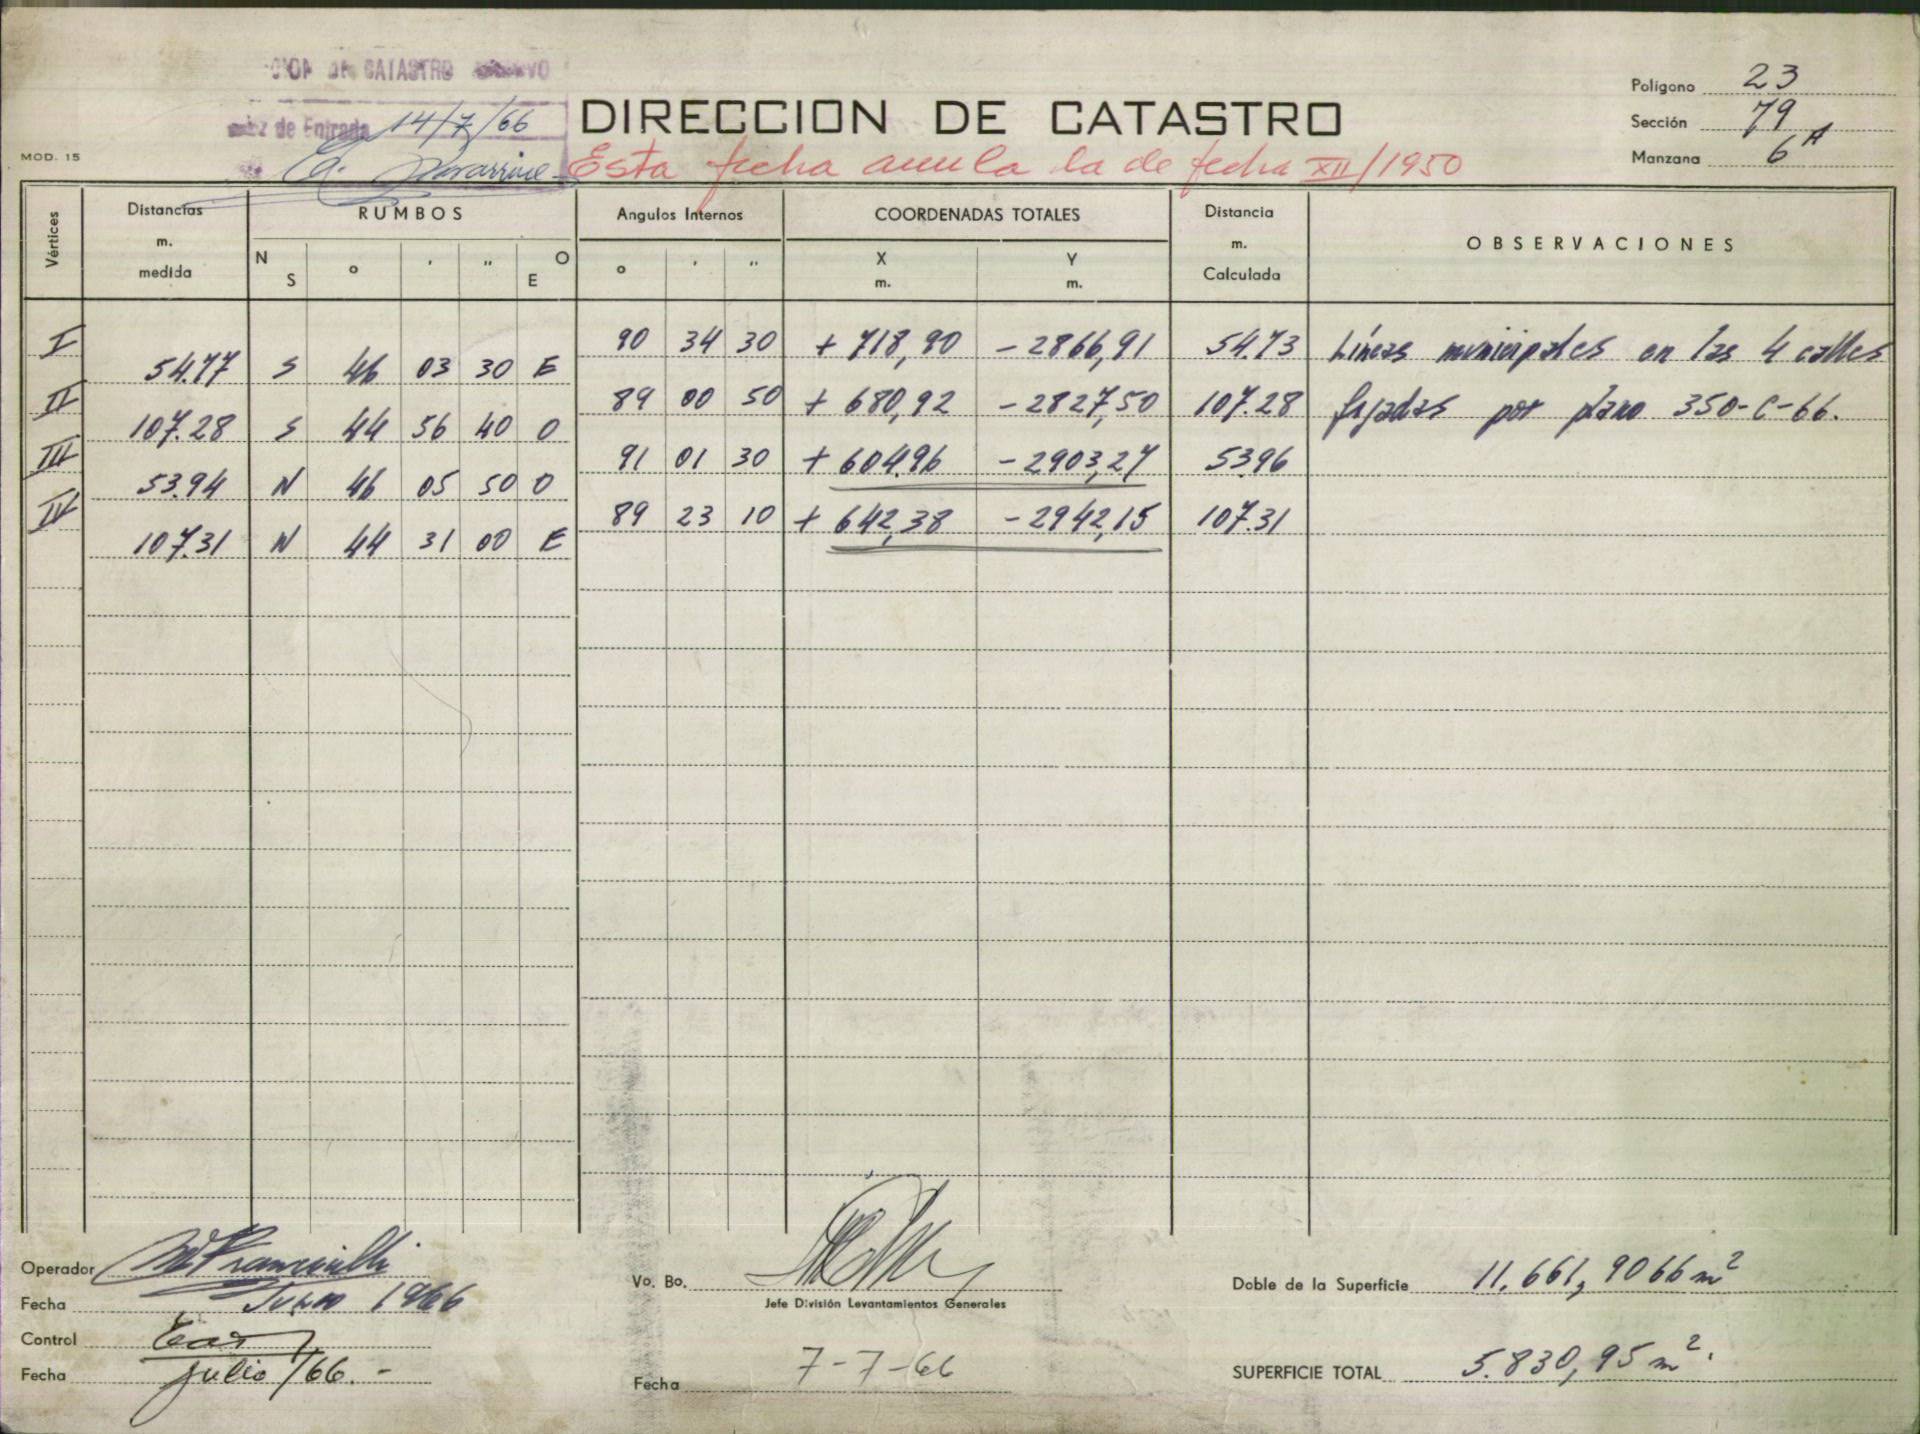 DE CATASTRO
de Entrada 14/7/66
DIRECCION DE CATASTRO
Polígono 23
Sección 79
Manzana 6A
MOD. 15
Esta fecha anula la de fecha XII/1950
Vértices
Distancias m. medida
RUMBOS
N S ° ' " O E
Angulos Internos
° ' "
COORDENADAS TOTALES
X m. Y m.
Distancia m. Calculada
OBSERVACIONES
I 90 34 30 + 718,90 - 2866,91 54.73 Líneas municipales en las 4 calles
54.77 S 46 03 30 E
II 89 00 50 + 680,92 - 2827,50 107.28 fijadas por plano 350-C-66.
107.28 S 44 56 40 O
III 91 01 30 + 604.96 - 2903,27 53.96
53.94 N 46 05 50 O
IV 89 23 10 + 642,38 - 2942,15 107.31
107.31 N 44 31 00 E
Operador
Fecha 1966
Control
Fecha julio/66.-
Vo. Bo.
Jefe División Levantamientos Generales
Fecha 7-7-66
Doble de la Superficie 11.661,9066 m²
SUPERFICIE TOTAL 5.830,95 m².